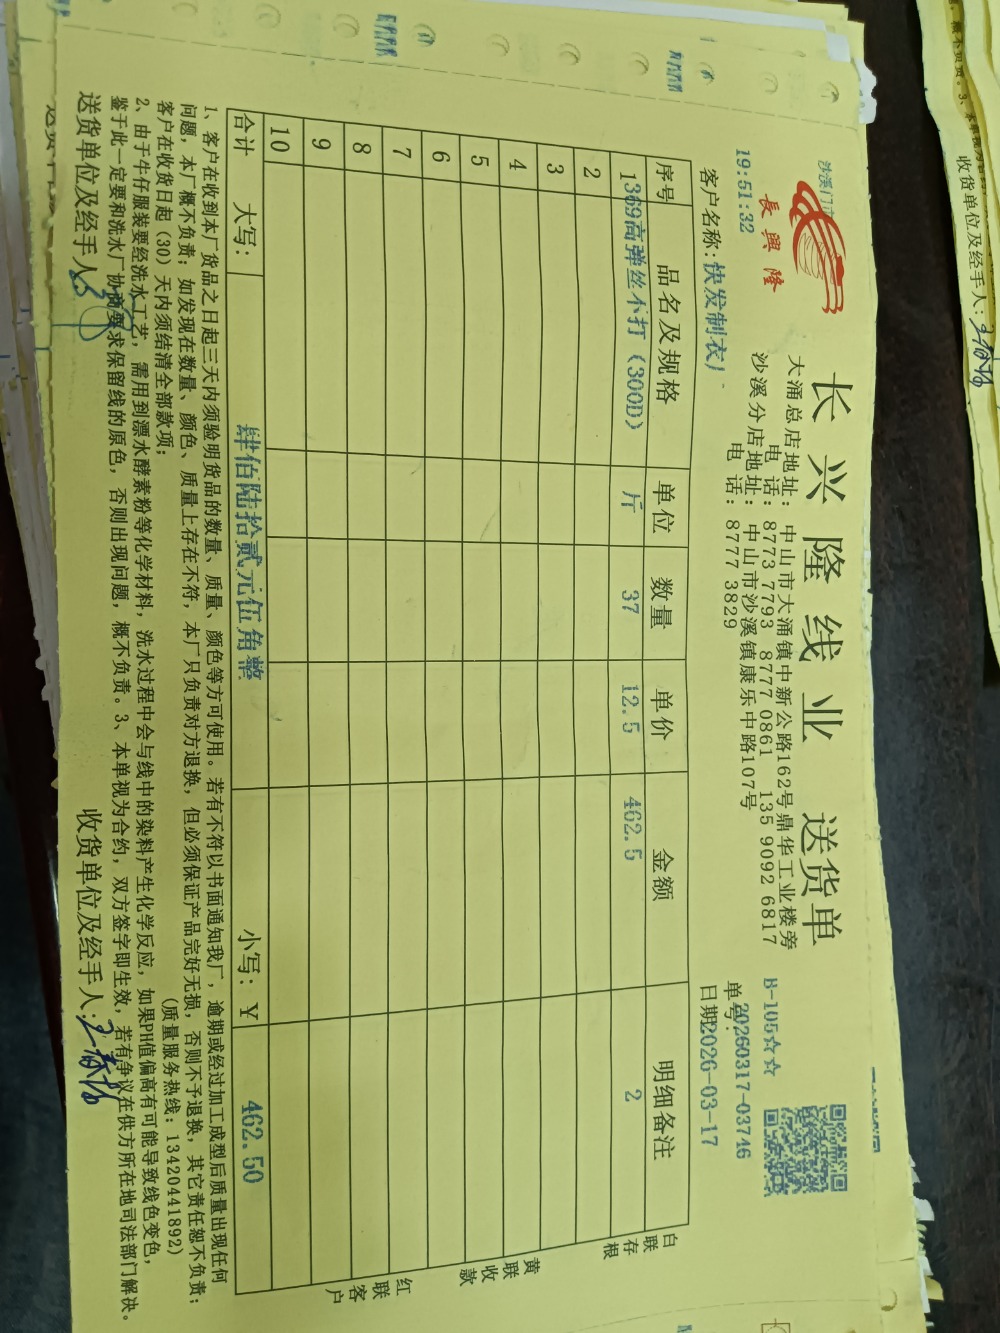 沙溪门市
長興隆
19:51:32
长兴隆线业 送货单
大涌总店地址:中山市大涌镇中新公路162号鼎华工业楼旁
电 话:8773 7793 8777 0861 135 9092 6817
沙溪分店地址:中山市沙溪镇康乐中路107号
电 话:8777 3829
B-105☆☆
单号:20260317-03746
客户名称:快发制衣厂
日期2026-03-17
序号 品名及规格 单位 数量 单价 金额 明细备注
1 369高弹丝不打(300D) 斤 37 12.5 462.5 2
2
3
4
5
6
7
8
9
10
合计 大写: 肆佰陆拾贰元伍角整 小写:¥ 462.50
白联存根
黄联收款
红联客户
1、客户在收到本厂货品之日起三天内须验明货品的数量、质量、颜色等方可使用。若有不符以书面通知我厂,逾期或经过加工成型后质量出现任何
问题,本厂概不负责;如发现在数量、颜色、质量上存在不符,本厂只负责对方退换,但必须保证产品完好无损,否则不予退换,其它责任恕不负责;
客户在收货日起(30)天内须结清全部款项;
(质量服务热线:13420441892)
2、由于牛仔服装要经洗水工艺,需用到漂水酵素粉等化学材料,洗水过程中会与线中的染料产生化学反应,如果PH值偏高有可能导致线色变色,
鉴于此一定要和洗水厂协商要求保留线的原色,否则出现问题,概不负责。3、本单视为合约,双方签字即生效,若有争议在供方所在地司法部门解决。
送货单位及经手人:
收货单位及经手人:
收货单位及经手人: